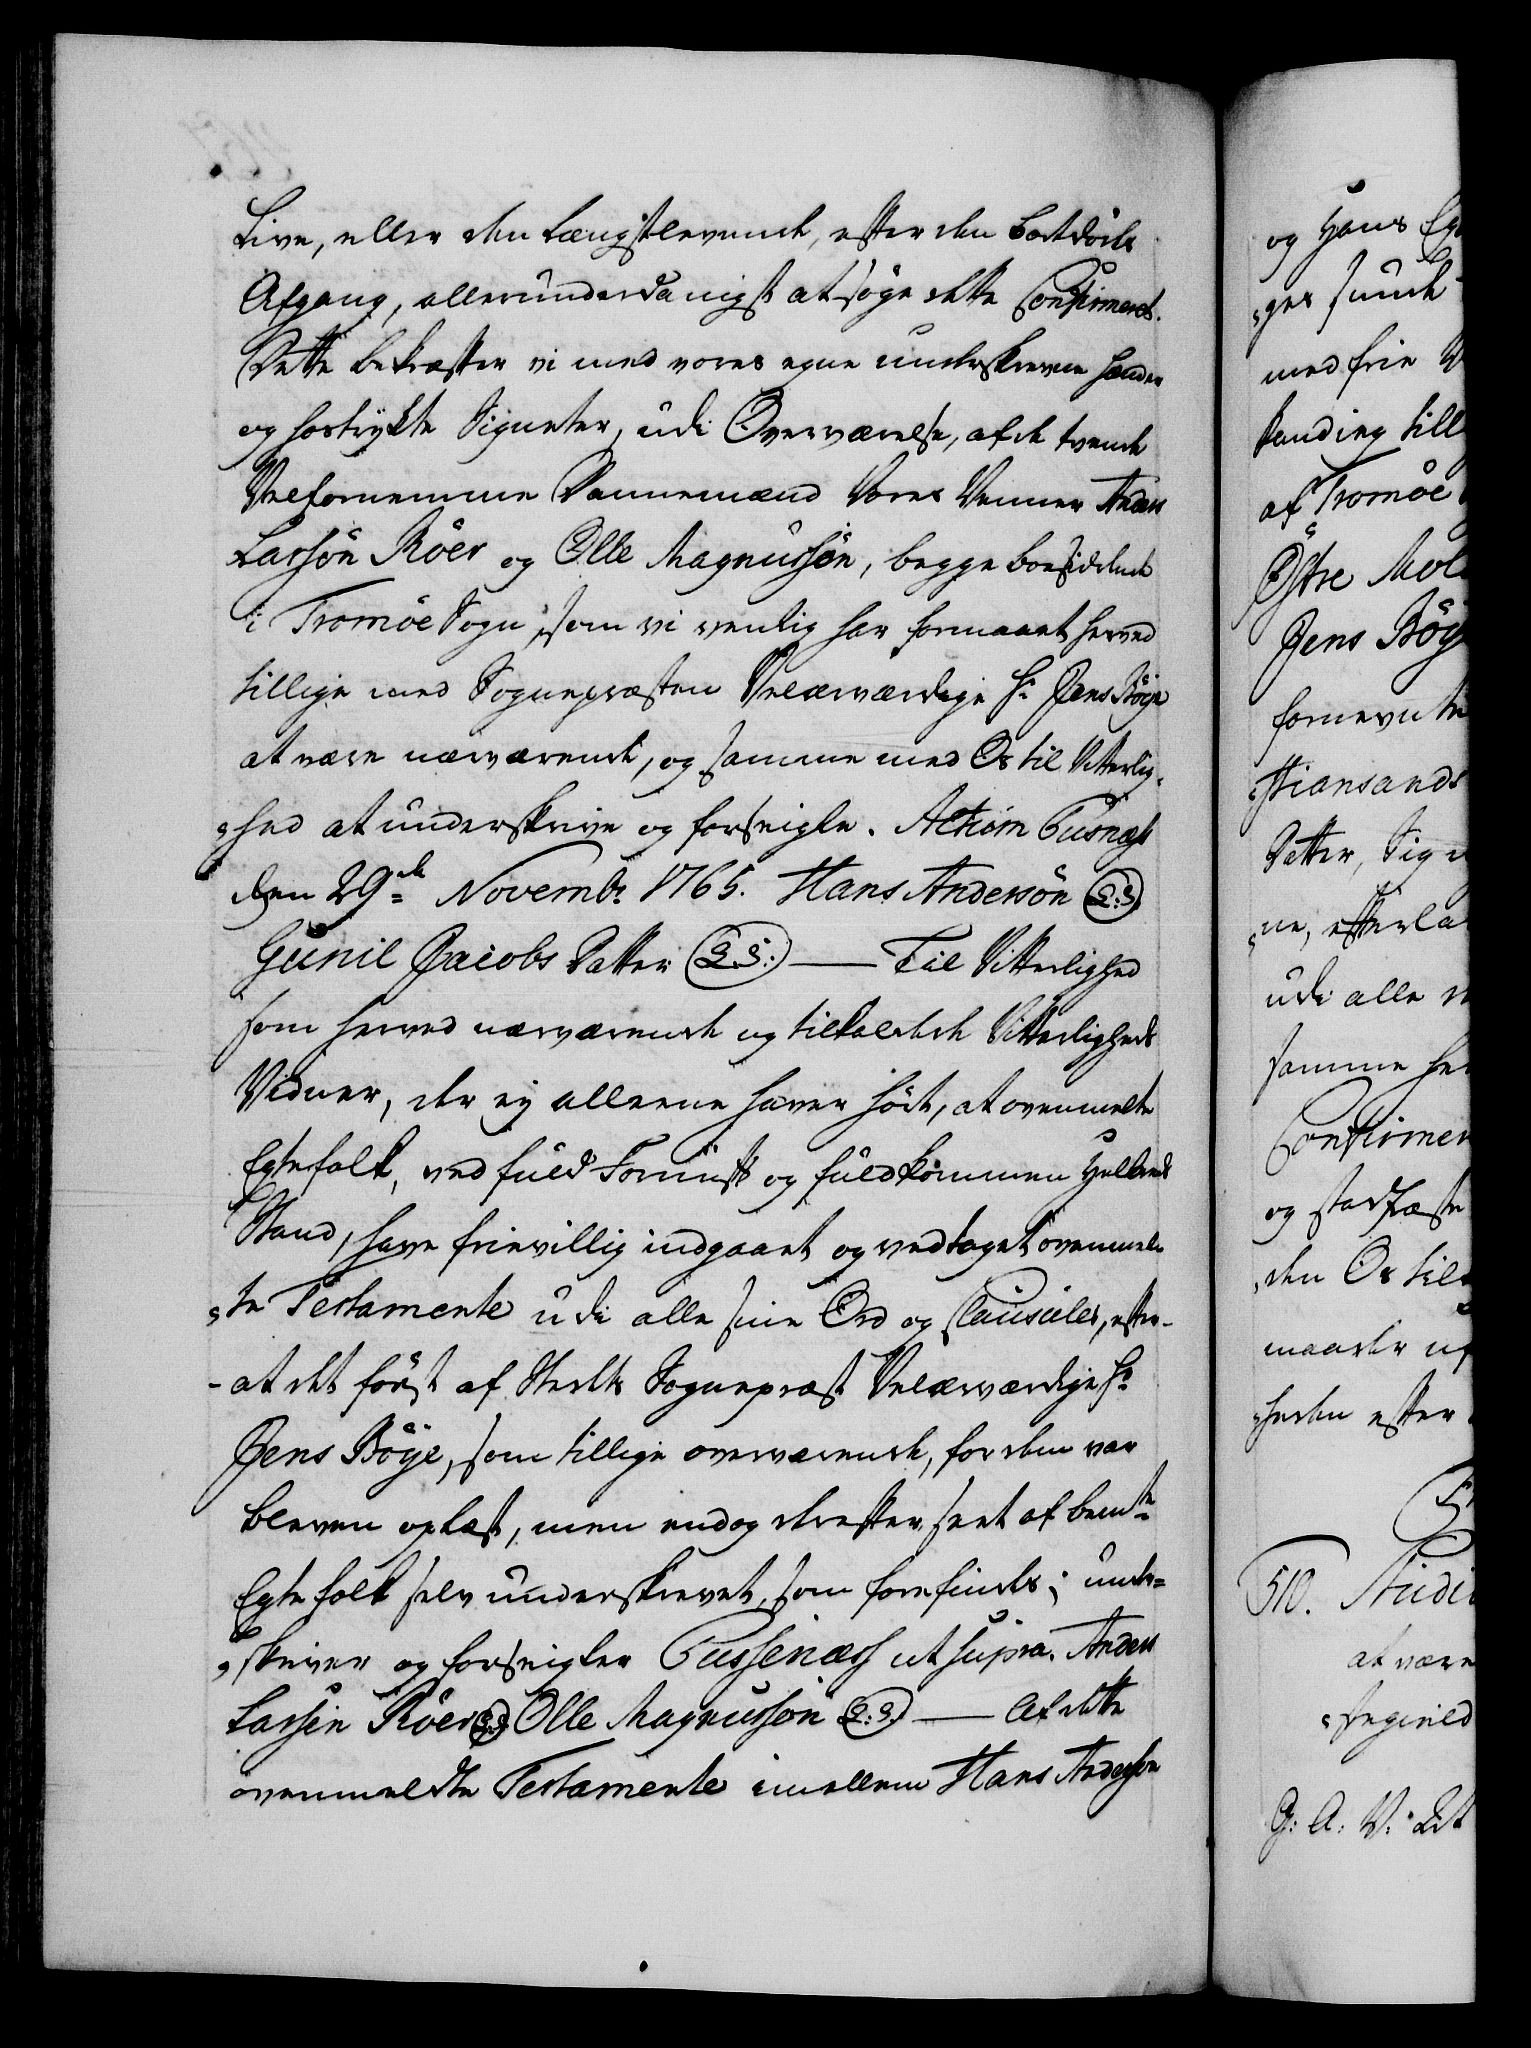 Live, eller den Længstlevende, efter den bortdödes
Afgang, allerunderdanigst at söge dette Confirmeret.
Dette bekræfter vi med vores egne underskrevne Hænder
og hostrykte Signeter, udi Overværelse, af de tvende
Velfornemme Dannemænd Vores Venner Anders
Larsön Röer og Olle Magnussön, begge boesiddende
i Tromöe Sogn, som vi venlig har formaaet herved
tillige med Sognepræsten Velærværdige Hr Jens Böye
at være nærværende, og samme med Os til Vitterlig-
hed at underskrive og forseigle. Actum Pusnæs
den 29de Novembr 1765. Hans Andersön (L:S)
Gunil Jacobs Datter (L.S:) — Til Vitterlighed
som herved nærværende og tilkaldede Vitterligheds
Vidner, der ey alleene haver hört, at ovenmelte
Egtefolk, ved fuld Fornuft og fuldkommen Helbreds
Stand, have frievillig indgaaet og vedtaget ovenmel-
te Testamente udi alle sine Ord og Clausuler, efter-
at det först af Stedets Sognepræst Velærværdige Hr
Jens Böye, som tillige overværende, for dem var
bleven oplæst, men endog derefter seet af bemte
Egtefolk selv underskrevet, som forefindes; under-
skriver og forseigler Pussenæss ut supra. Anders
Larsen Röer (L.S) Olle Magnusson (L:S.) — Af dette
ovenmeldte Testamente imellem Hans Andersen
og Hans Eg
ges funde
med frie V
kending till
af Tromöe
Östre Mol
Jens Böy
fornevnte
stiansands
Datter, Sig
ne, efterla
udi alle
samme he
Confirmer
og stadfæste
den Os til
maader
heden efter
510.
at være
G: A: V: